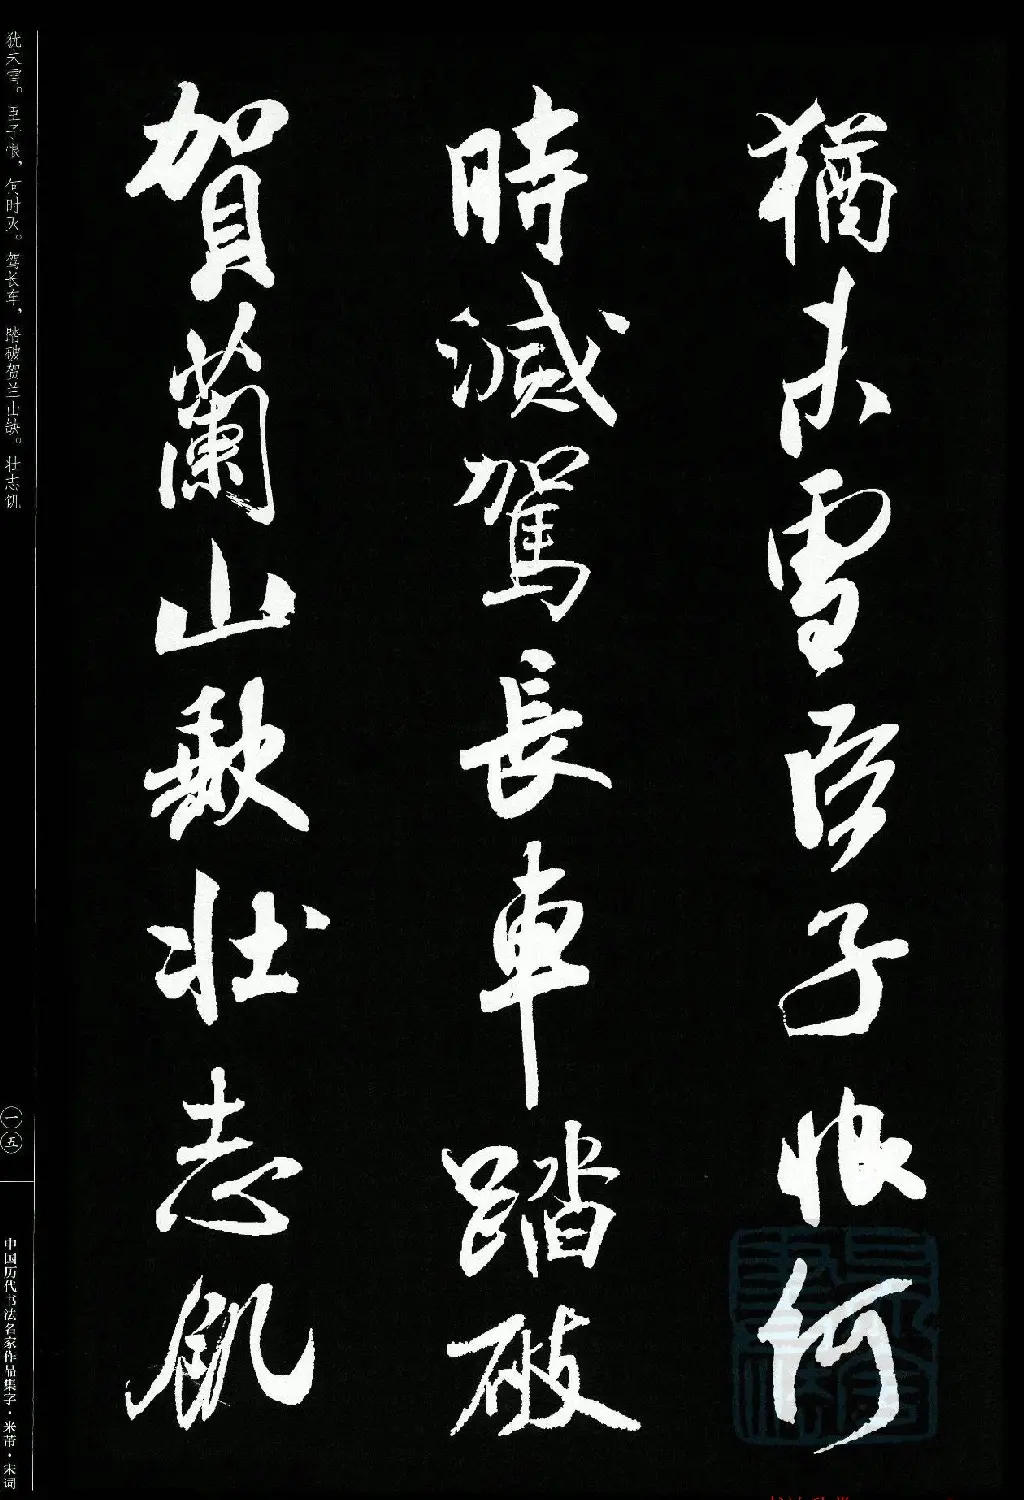 猶未雪臣子恨何
時滅駕長車踏破
賀蘭山缺壯志飢
犹未雪。臣子恨，何时灭。驾长车，踏破贺兰山缺。壮志饥
一五
中国历代书法名家作品集字·米芾·宋词